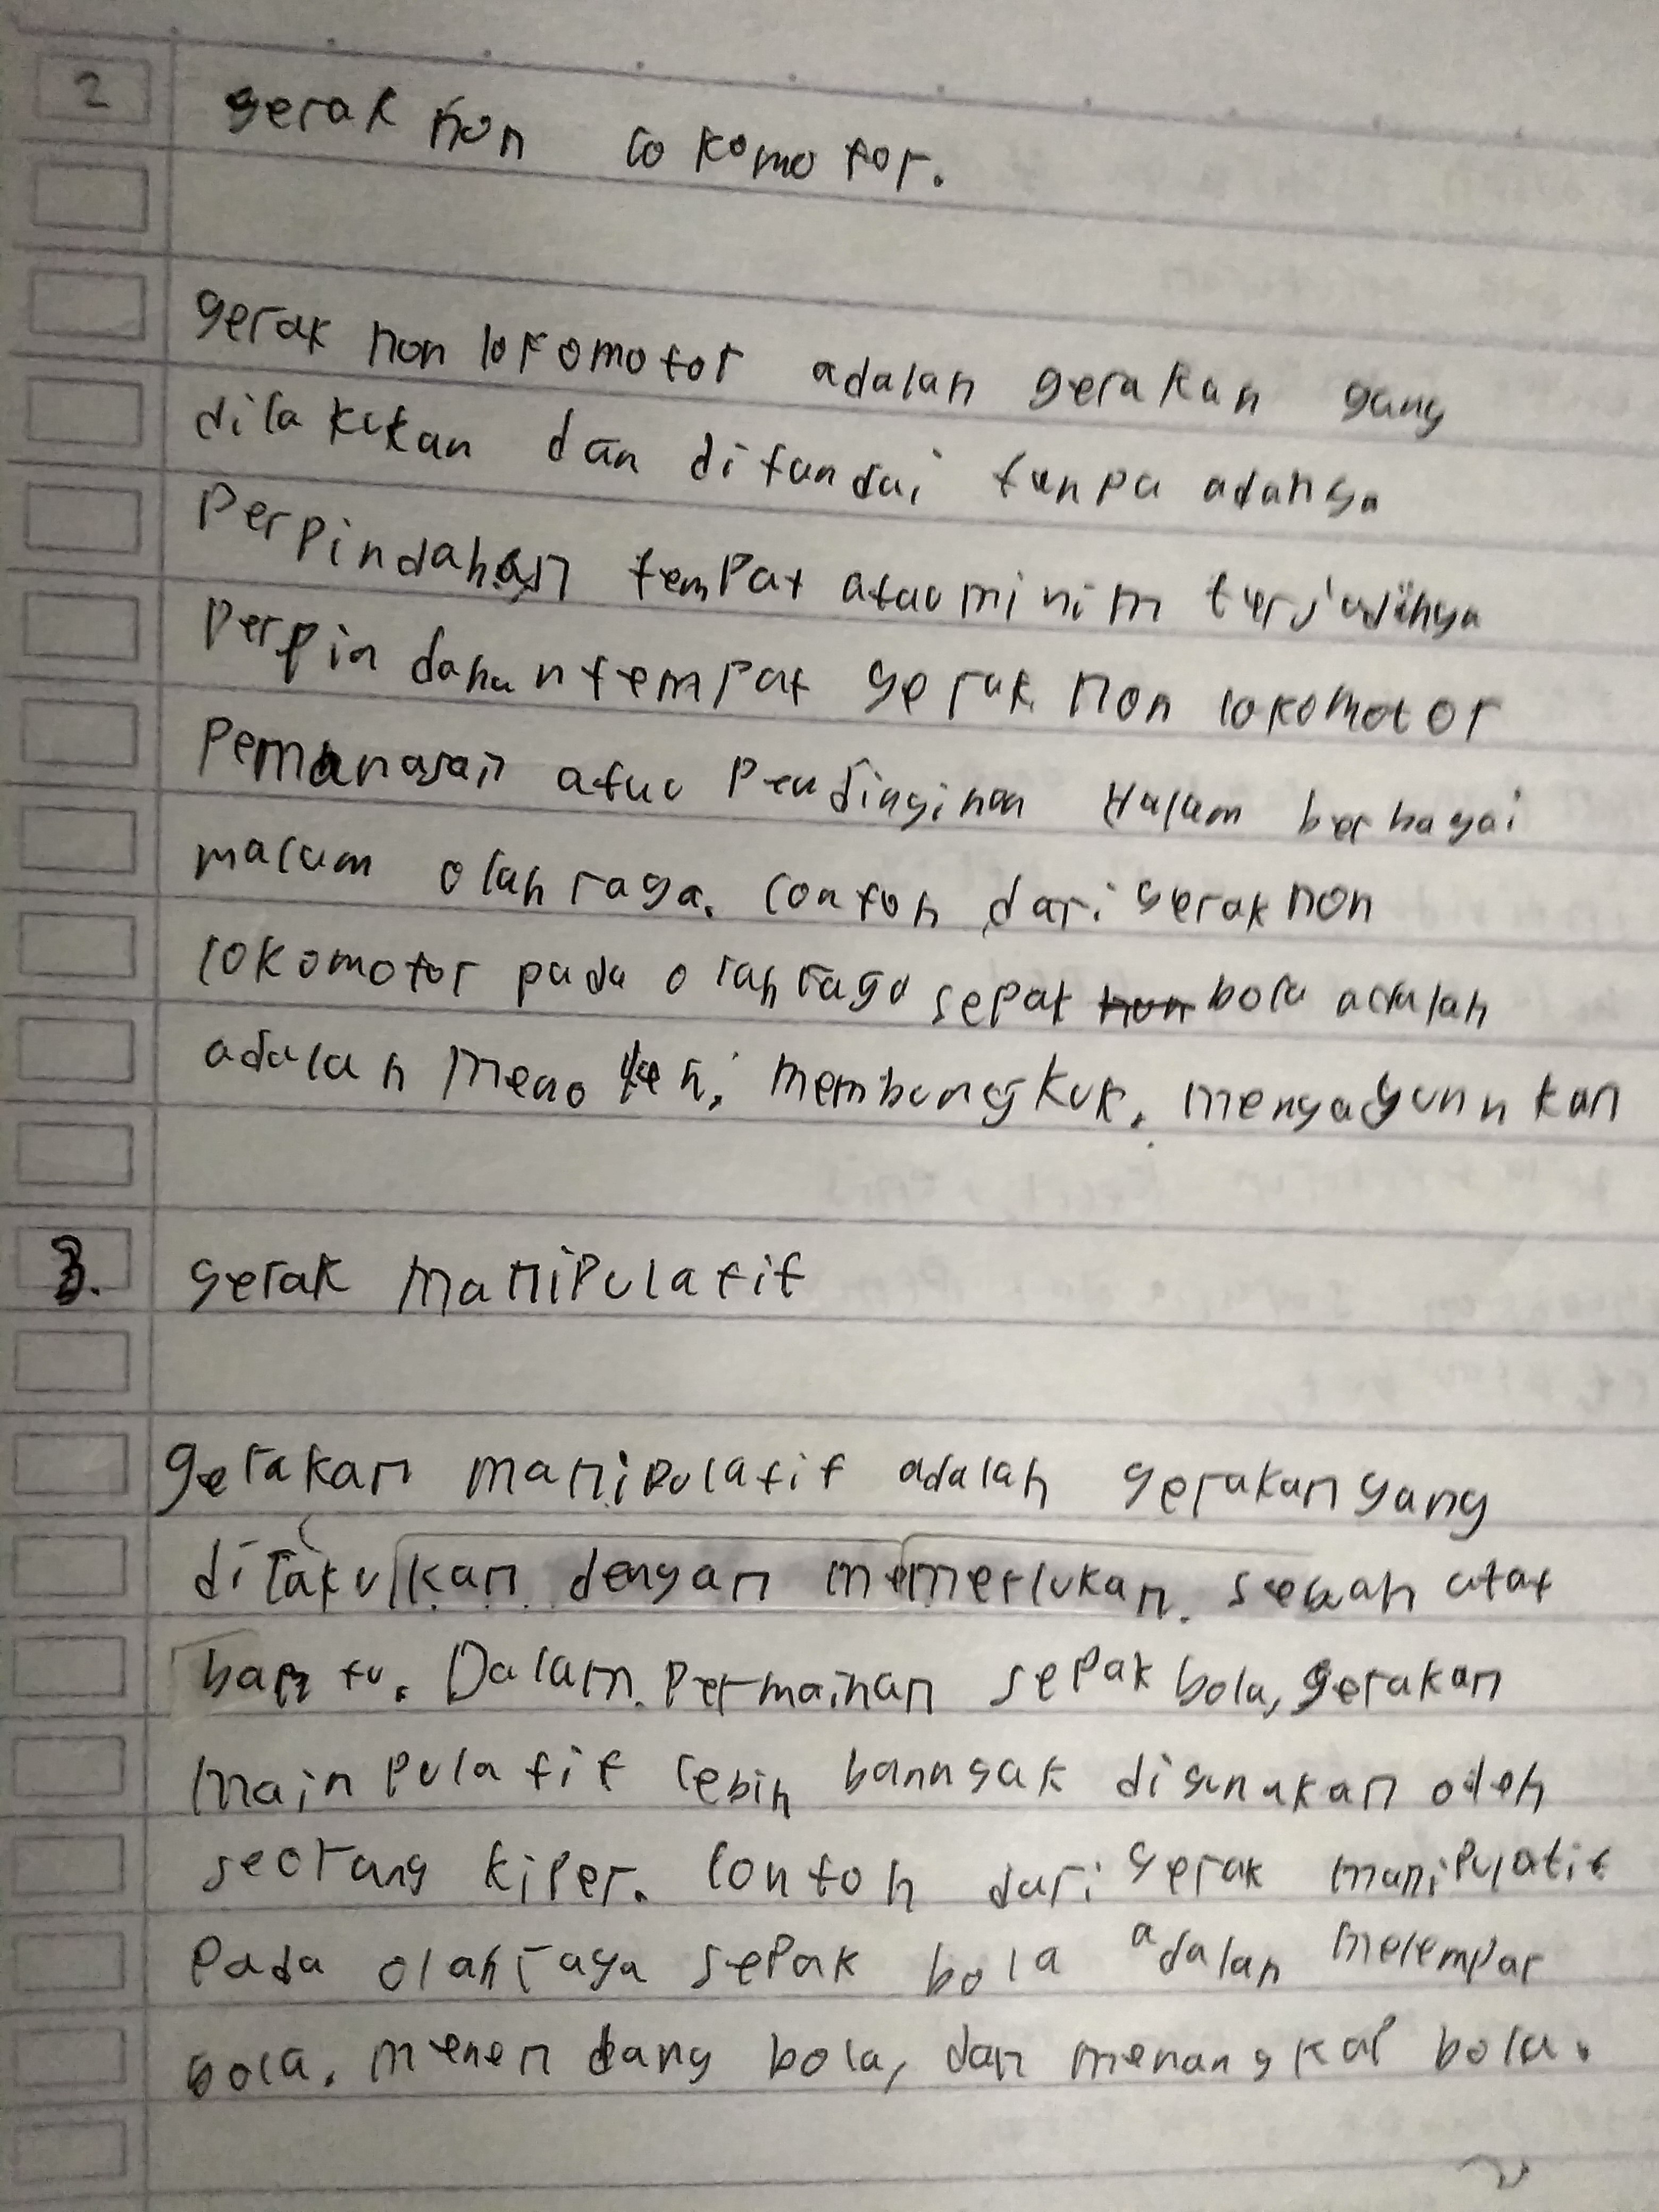 2 gerak non lokomotor.
gerak non lokomotor adalah gerakan yang
dilakukan dan ditandai tanpa adanya
Perpindahan tempat atau minim terjadinya
Perpindahan tempat gerak non lokomotor
Pemanasan atau Pendinginan dalam berbagai
macam olahraga. Contoh dari gerak non
lokomotor pada olahraga sepak bola adalah
adalah menoleh, membungkuk, mengayunukan
3. gerak maniPulatif
gerakan manipulatif adalah gerakan yang
dilakukan dengan memerlukan sebuah alat
bantu. Dalam Permainan sepak bola, gerakan
mainpulatif lebih bannyak digunakan oleh
seorang kiper. Contoh dari gerak manipulatif
Pada olahraga sepak bola adalah melempar
bola, menendang bola, dan menangkap bola.